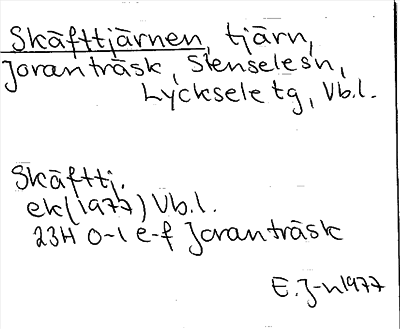 Skäfttjärnen, tjärn,
Joranträsk, Stenselesn,
Lycksele tg, Vb.l.
Skäfttj.
ek(1977) Vb.l.
23H 0-1 e-f Joranträsk
E.J-n 1977